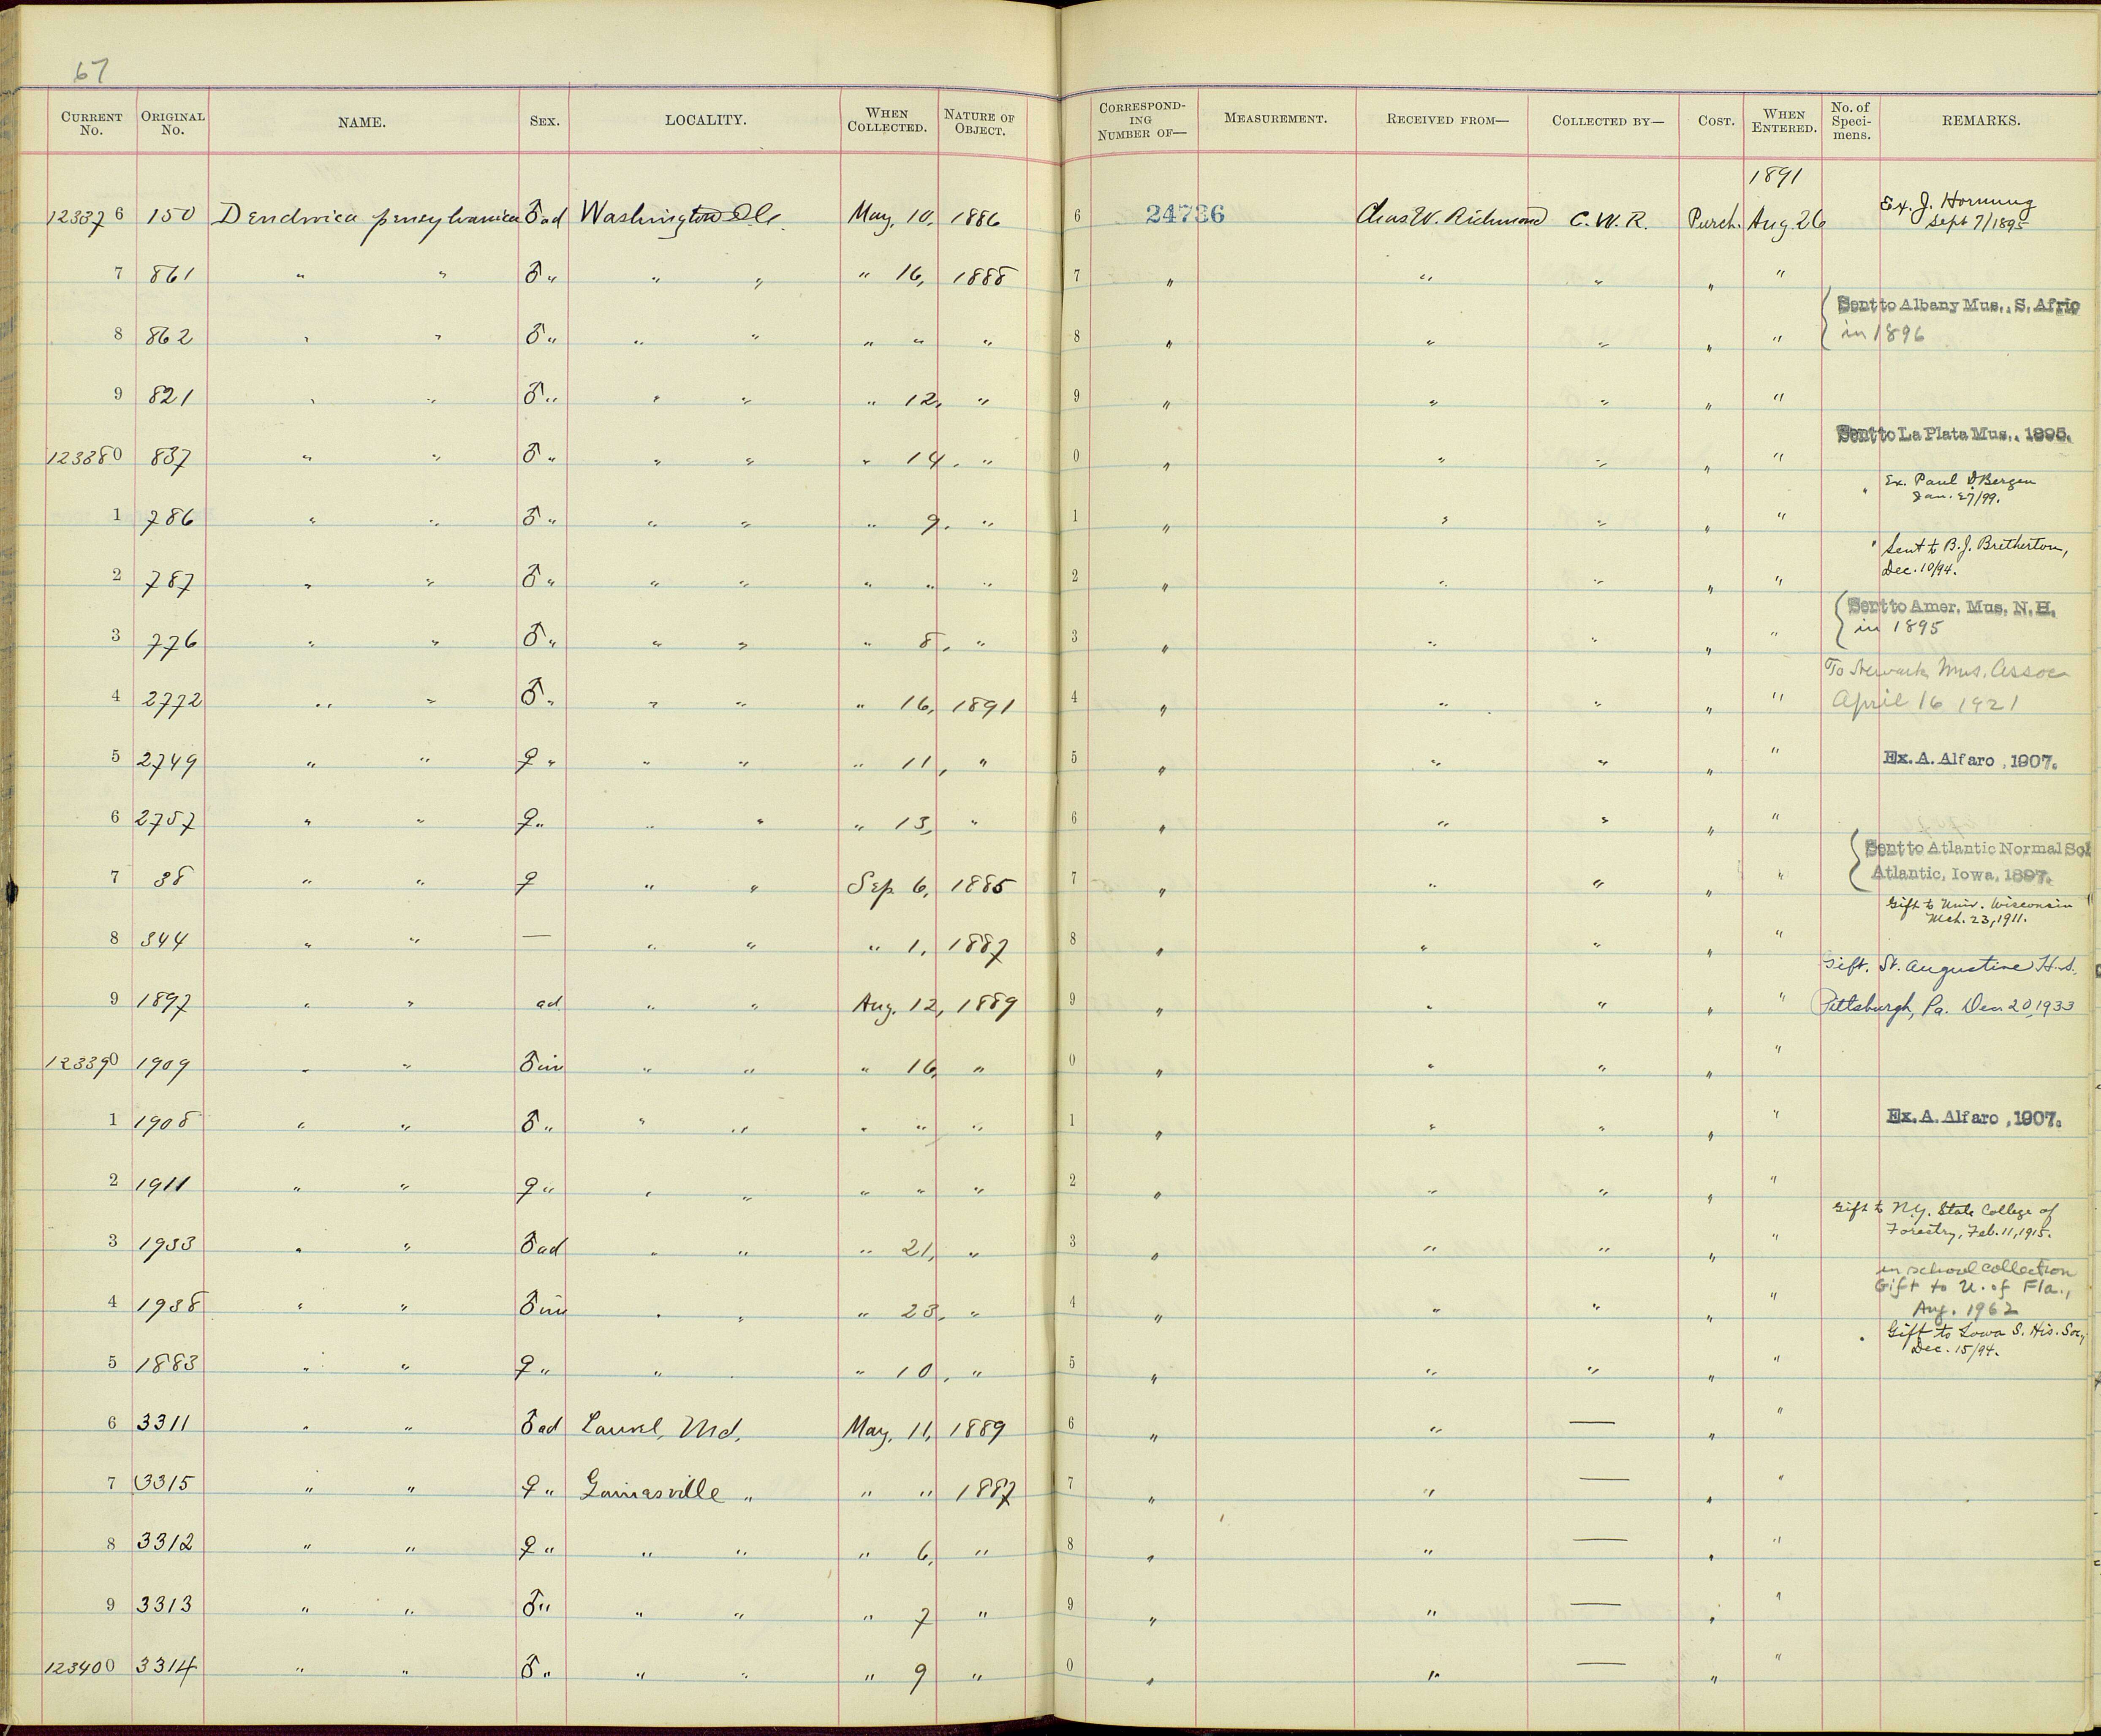 67
CURRENT No. ORIGINAL No. NAME. SEX. LOCALITY. WHEN COLLECTED. NATURE OF OBJECT. CORRESPOND-ING NUMBER OF— MEASUREMENT. RECEIVED FROM— COLLECTED BY— COST. WHEN ENTERED. No. of Speci-mens. REMARKS.
1891
12337 6 150 Dendroica pensylvanica ♂ ad Washington D.C. May, 10, 1886 6 24736 Chas W. Richmond C. W. R. Purch. Aug 26 Ex. J. Hornung
Sept 7/1895
7 861 " " ♂ " " " " 16, 1888 7 " " " " "
Sent to Albany Mus., S. Afric
in 1896
8 862 " " ♂ " " " " " " 8 " " " " "
9 821 " " ♂ " " " " 12, " 9 " " " " "
Sent to La Plata Mus., 1895.
12338 0 837 " " ♂ " " " " 14, " 0 " " " " "
Ex. Paul D. Bergen
Jan. 27/99.
1 786 " " ♂ " " " " 9, " 1 " " " " "
Sent to B. J. Bretherton,
Dec. 10/94.
2 787 " " ♂ " " " " " " 2 " " " " "
Sent to Amer. Mus. N. H.
in 1895
3 776 " " ♂ " " " " 8, " 3 " " " " "
To Newark Mus. Assoc
4 2772 " " ♂ " " " " 16, 1891 4 " " " " " April 16 1921
5 2749 " " ♀ " " " " 11, " 5 " " " " " Ex. A. Alfaro, 1907.
6 2757 " " ♀ " " " " 13, " 6 " " " " "
Sent to Atlantic Normal Sch
Atlantic, Iowa, 1897.
7 38 " " ♀ " " Sep 6, 1885 7 " " " " "
Gift to Univ. Wisconsin
Mch. 23, 1911.
8 344 " " — " " " 1, 1887 8 " " " " "
Gift. St. Augustine H.S.
9 1897 " " ad " " Aug. 12, 1889 9 " " " " " Pittsburgh, Pa. Dec 20, 1933
12339 0 1909 " " ♂ im " " " 16, " 0 " " " " "
1 1908 " " ♂ " " " " " " 1 " " " " " Ex. A. Alfaro, 1907.
2 1911 " " ♀ " " " " " " 2 " " " " "
Gift to N.Y. State College of
Forestry, Feb. 11, 1915.
3 1933 " " ♂ ad " " " 21, " 3 " " " " "
in school collection
Gift to U. of Fla.,
Aug. 1962
4 1938 " " ♂ im " " " 23, " 4 " " " " "
Gift to Iowa S. His. Soc,
Dec. 15/94.
5 1883 " " ♀ " " " 10, " 5 " " " " "
6 3311 " " ♂ ad Laurel, Md. May, 11, 1889 6 " " — " "
7 3315 " " ♀ " Gainesville " " " 1887 7 " " — " "
8 3312 " " ♀ " " " " 6, " 8 " " — " "
9 3313 " " ♂ " " " " 7 " 9 " " — " "
12340 0 3314 " " ♂ " " " " 9 " 0 " " — " "